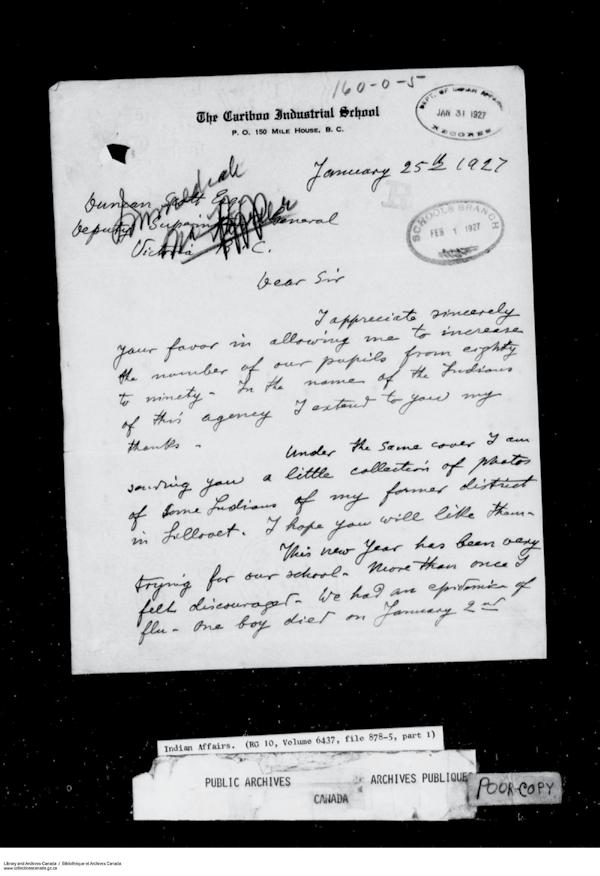 160-0-5
DEPT. OF INDIAN AFFAIRS
JAN 31 1927
RECORDS
The Cariboo Industrial School
P. O. 150 MILE HOUSE, B. C.
January 25th 1927
Duncan Scott Esq.
Deputy Superintendent General
Victoria B. C.
SCHOOLS BRANCH
FEB 1 1927
Dear Sir
I appreciate sincerely
your favor in allowing me to increase
the number of our pupils from eighty
to ninety - In the name of the Indians
of this agency I extend to you my
thanks -
Under the same cover I am
sending you a little collection of photos
of some Indians of my former district
in Lillooet. I hope you will like them -
This new Year has been very
trying for our school - More than once I
felt discouraged - We had an epidemic of
flu - One boy died on January 2nd
Indian Affairs. (RG 10, Volume 6437, file 878-5, part 1)
PUBLIC ARCHIVES
ARCHIVES PUBLIQUES
CANADA
POOR COPY
Library and Archives Canada / Bibliothèque et Archives Canada
www.collectionscanada.gc.ca